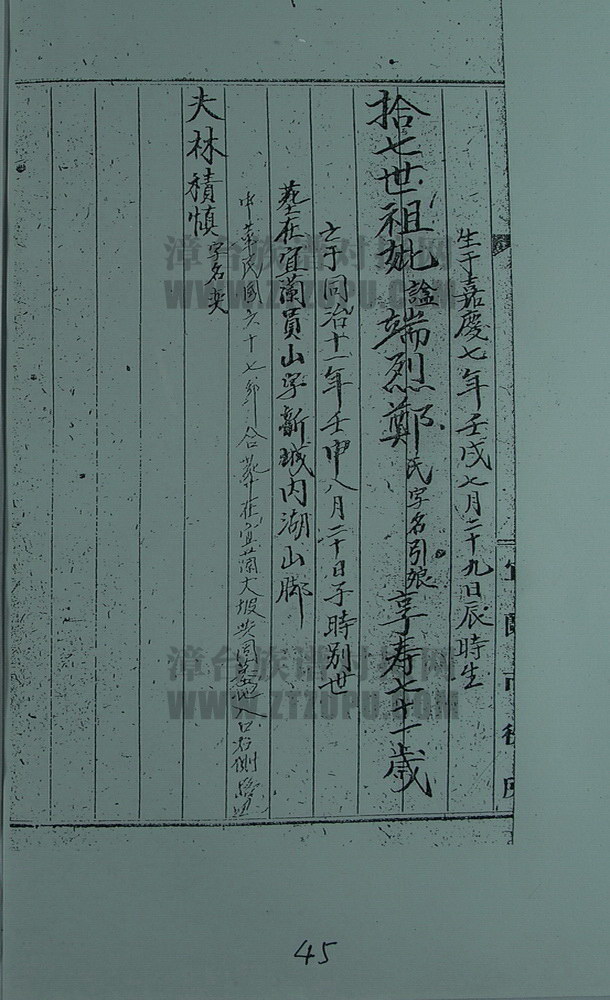 生于嘉慶七年壬戌七月二十九日辰時生
拾七世祖妣諡端烈鄭氏字名引娘享寿七十一歲
亡于同治十一年壬申八月二十日子時別世
墓在宜蘭員山字新城内湖山脚
中華民國六十七年合葬在宜蘭大坡共同墓地入口右側
夫林積慎字名
宜蘭市役所
漳台族谱对接网
WWW.ZTZUPU.COM
漳台族谱对接网
WWW.ZTZUPU.COM
45